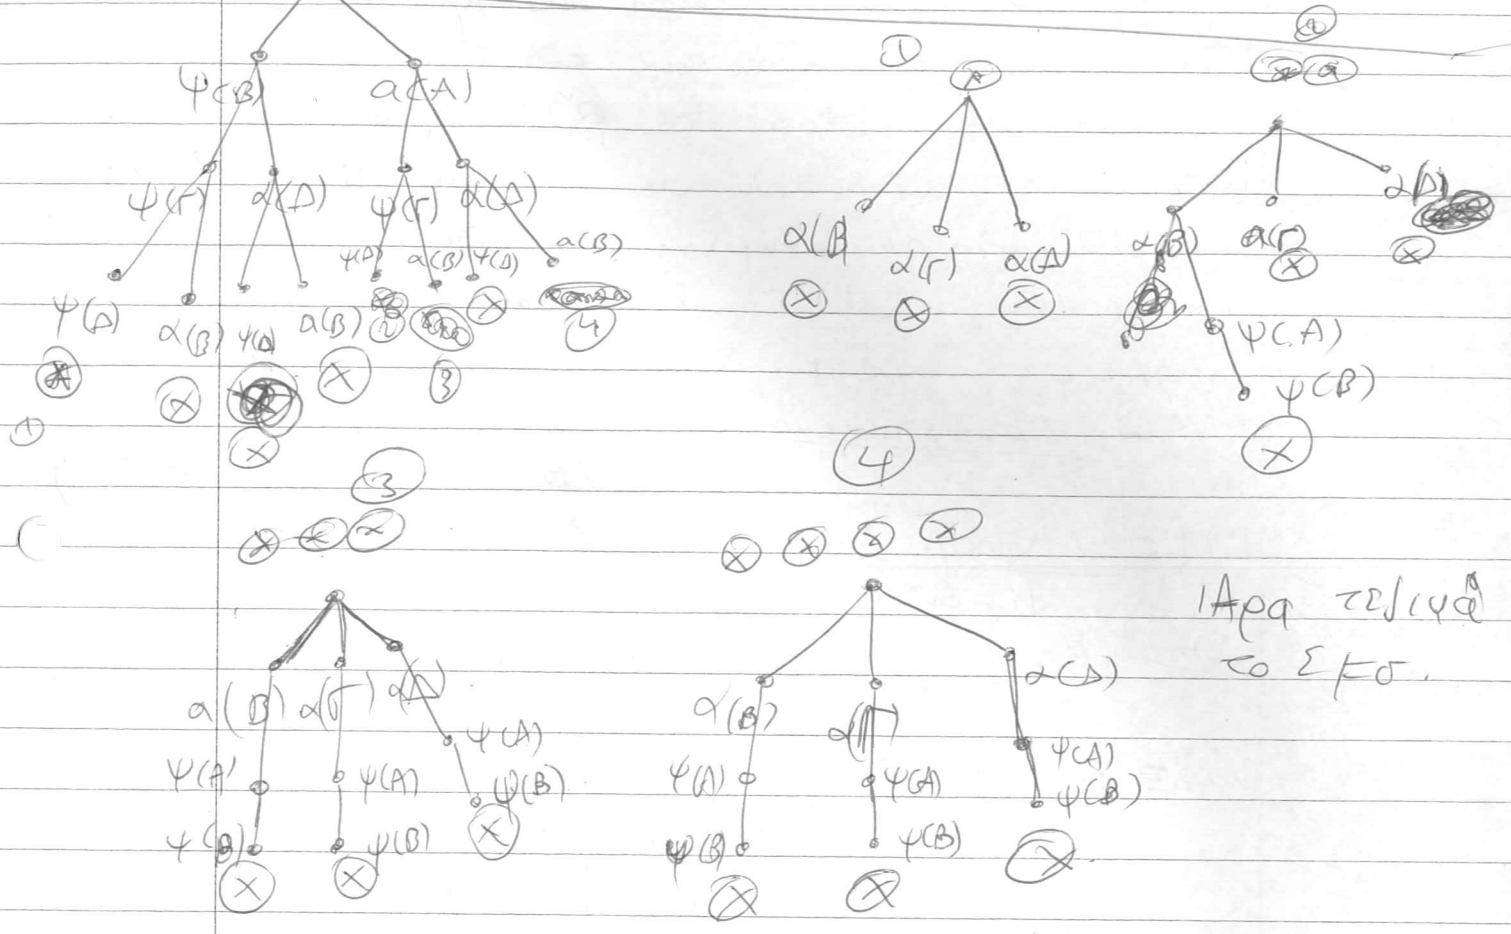 ψ(Β) α(Α)
ψ(Γ) α(Δ) ψ(Γ) α(Δ)
ψ(Δ) α(Β) ψ(Δ) α(Β) ψ(Δ) α(Β) ψ(Δ) α(Β)
1 2 3 4
1
α(Β α(Γ) α(Δ)
α(Β) α(Γ) α(Δ)
ψ(Α)
ψ(Β)
3
α(Β) α(Γ) α(Δ)
ψ(Α) ψ(Α) ψ(Α)
ψ(Β) ψ(Β) ψ(Β)
4
α(Β) α(Γ) α(Δ)
ψ(Α) ψ(Α) ψ(Α)
ψ(Β) ψ(Β) ψ(Β)
Άρα τελικά
το Σ ⊨ σ.